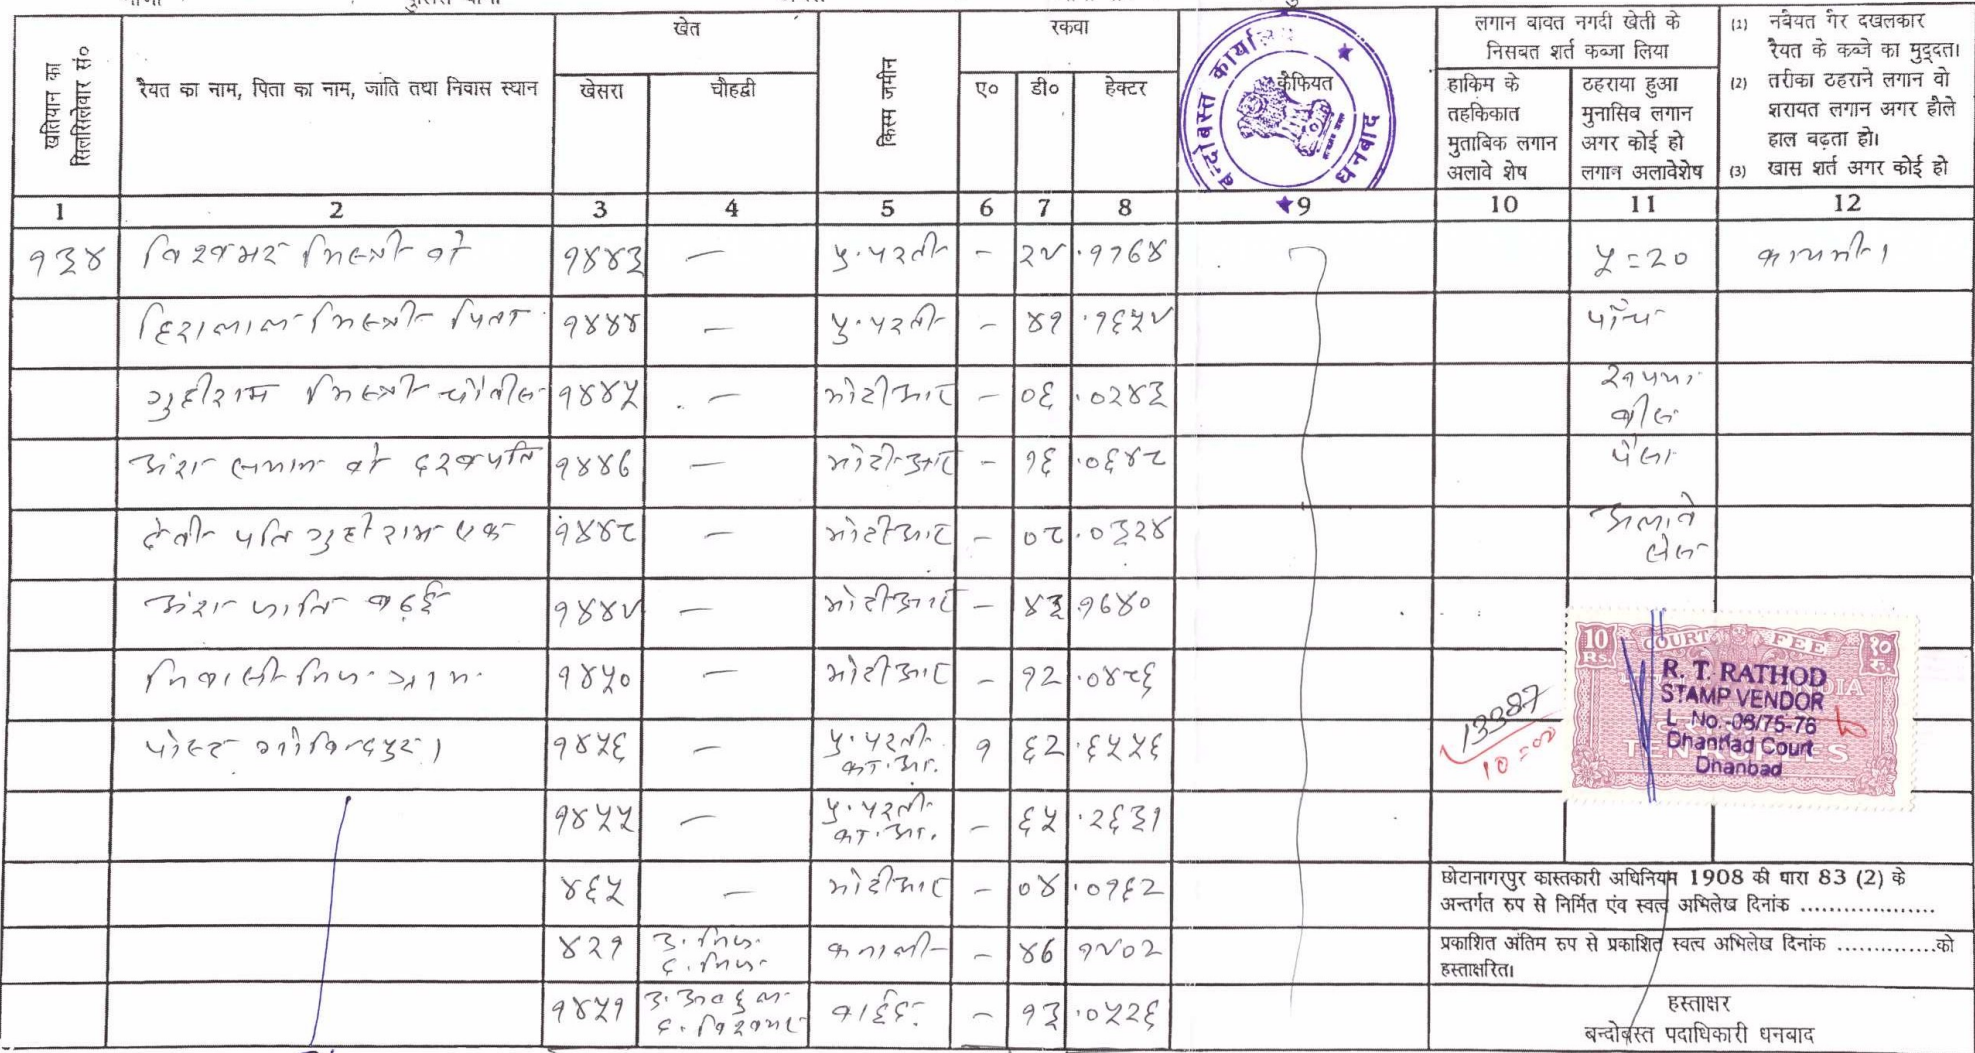 खतियान का सिलसिलेवार सं०
रैयत का नाम, पिता का नाम, जाति तथा निवास स्थान
खेत
खेसरा
चौहद्दी
किस्म जमीन
रकवा
ए०
डी०
हेक्टर
कैफियत
बन्दोबस्त कार्यालय धनबाद
लगान बावत नगदी खेती के
निसबत शर्त कब्जा लिया
हाकिम के
तहकिकात
मुताबिक लगान
अलावे शेष
ठहराया हुआ
मुनासिव लगान
अगर कोई हो
लगान अलावेशेष
(1) नवैयत गैर दखलकार
रैयत के कब्जे का मुद्दत।
(2) तरीका ठहराने लगान वो
शरायत लगान अगर हौले
हाल बढ़ता हो।
(3) खास शर्त अगर कोई हो
1 2 3 4 5 6 7 8 9 10 11 12
१३४ विश्वभर मिस्त्री वो १४४३ — पु.परती - २९ .११७४ ५=२० कायमी।
हिरालाल मिस्त्री पिता १४४४ — पु.परती - ४१ .१६५९ पाँच
गुहीराम मिस्त्री चौतीस १४४५ — मोटीआर - ०६ .०२४३ रूपया
बीस
अंश समान वो दरबपति १४४७ — मोटीआर - १६ .०६४८ पैसा
देवी पति गुहीराम एक १४४८ — मोटीआर - ०८ .०३२४ अलावे
सेस
अंश जाति बढ़ई १४४९ — मोटीआर - ४३ .१७४०
निवासी निज ग्राम १४५० — मोटीआर - १२ .०४८६
पोस्ट गोविन्दपुर। १४५६ — पु.परती का.आ. १ ६२ .६५५६
१४५५ — पु.परती का.आ. - ६५ .२६३१
४६५ — मोटीआर - ०४ .०१६२
४२१ उ. निज द. निज कनाली - ४७ १९०२
१४५१ उ. द. विश्वभर बाईद - १३ .०५२६
13387
10=00
10 Rs. COURT FEE १० रु.
INDIA
TEN RUPEES
R. T. RATHOD
STAMP VENDOR
L. No.-06/75-76
Dhanbad Court
Dhanbad
छोटानागपुर कास्तकारी अधिनियम 1908 की धारा 83 (2) के
अन्तर्गत रुप से निर्मित एंव स्वत्व अभिलेख दिनांक ....................
प्रकाशित अंतिम रुप से प्रकाशित स्वत्व अभिलेख दिनांक ..............को
हस्ताक्षरित।
हस्ताक्षर
बन्दोबस्त पदाधिकारी धनबाद